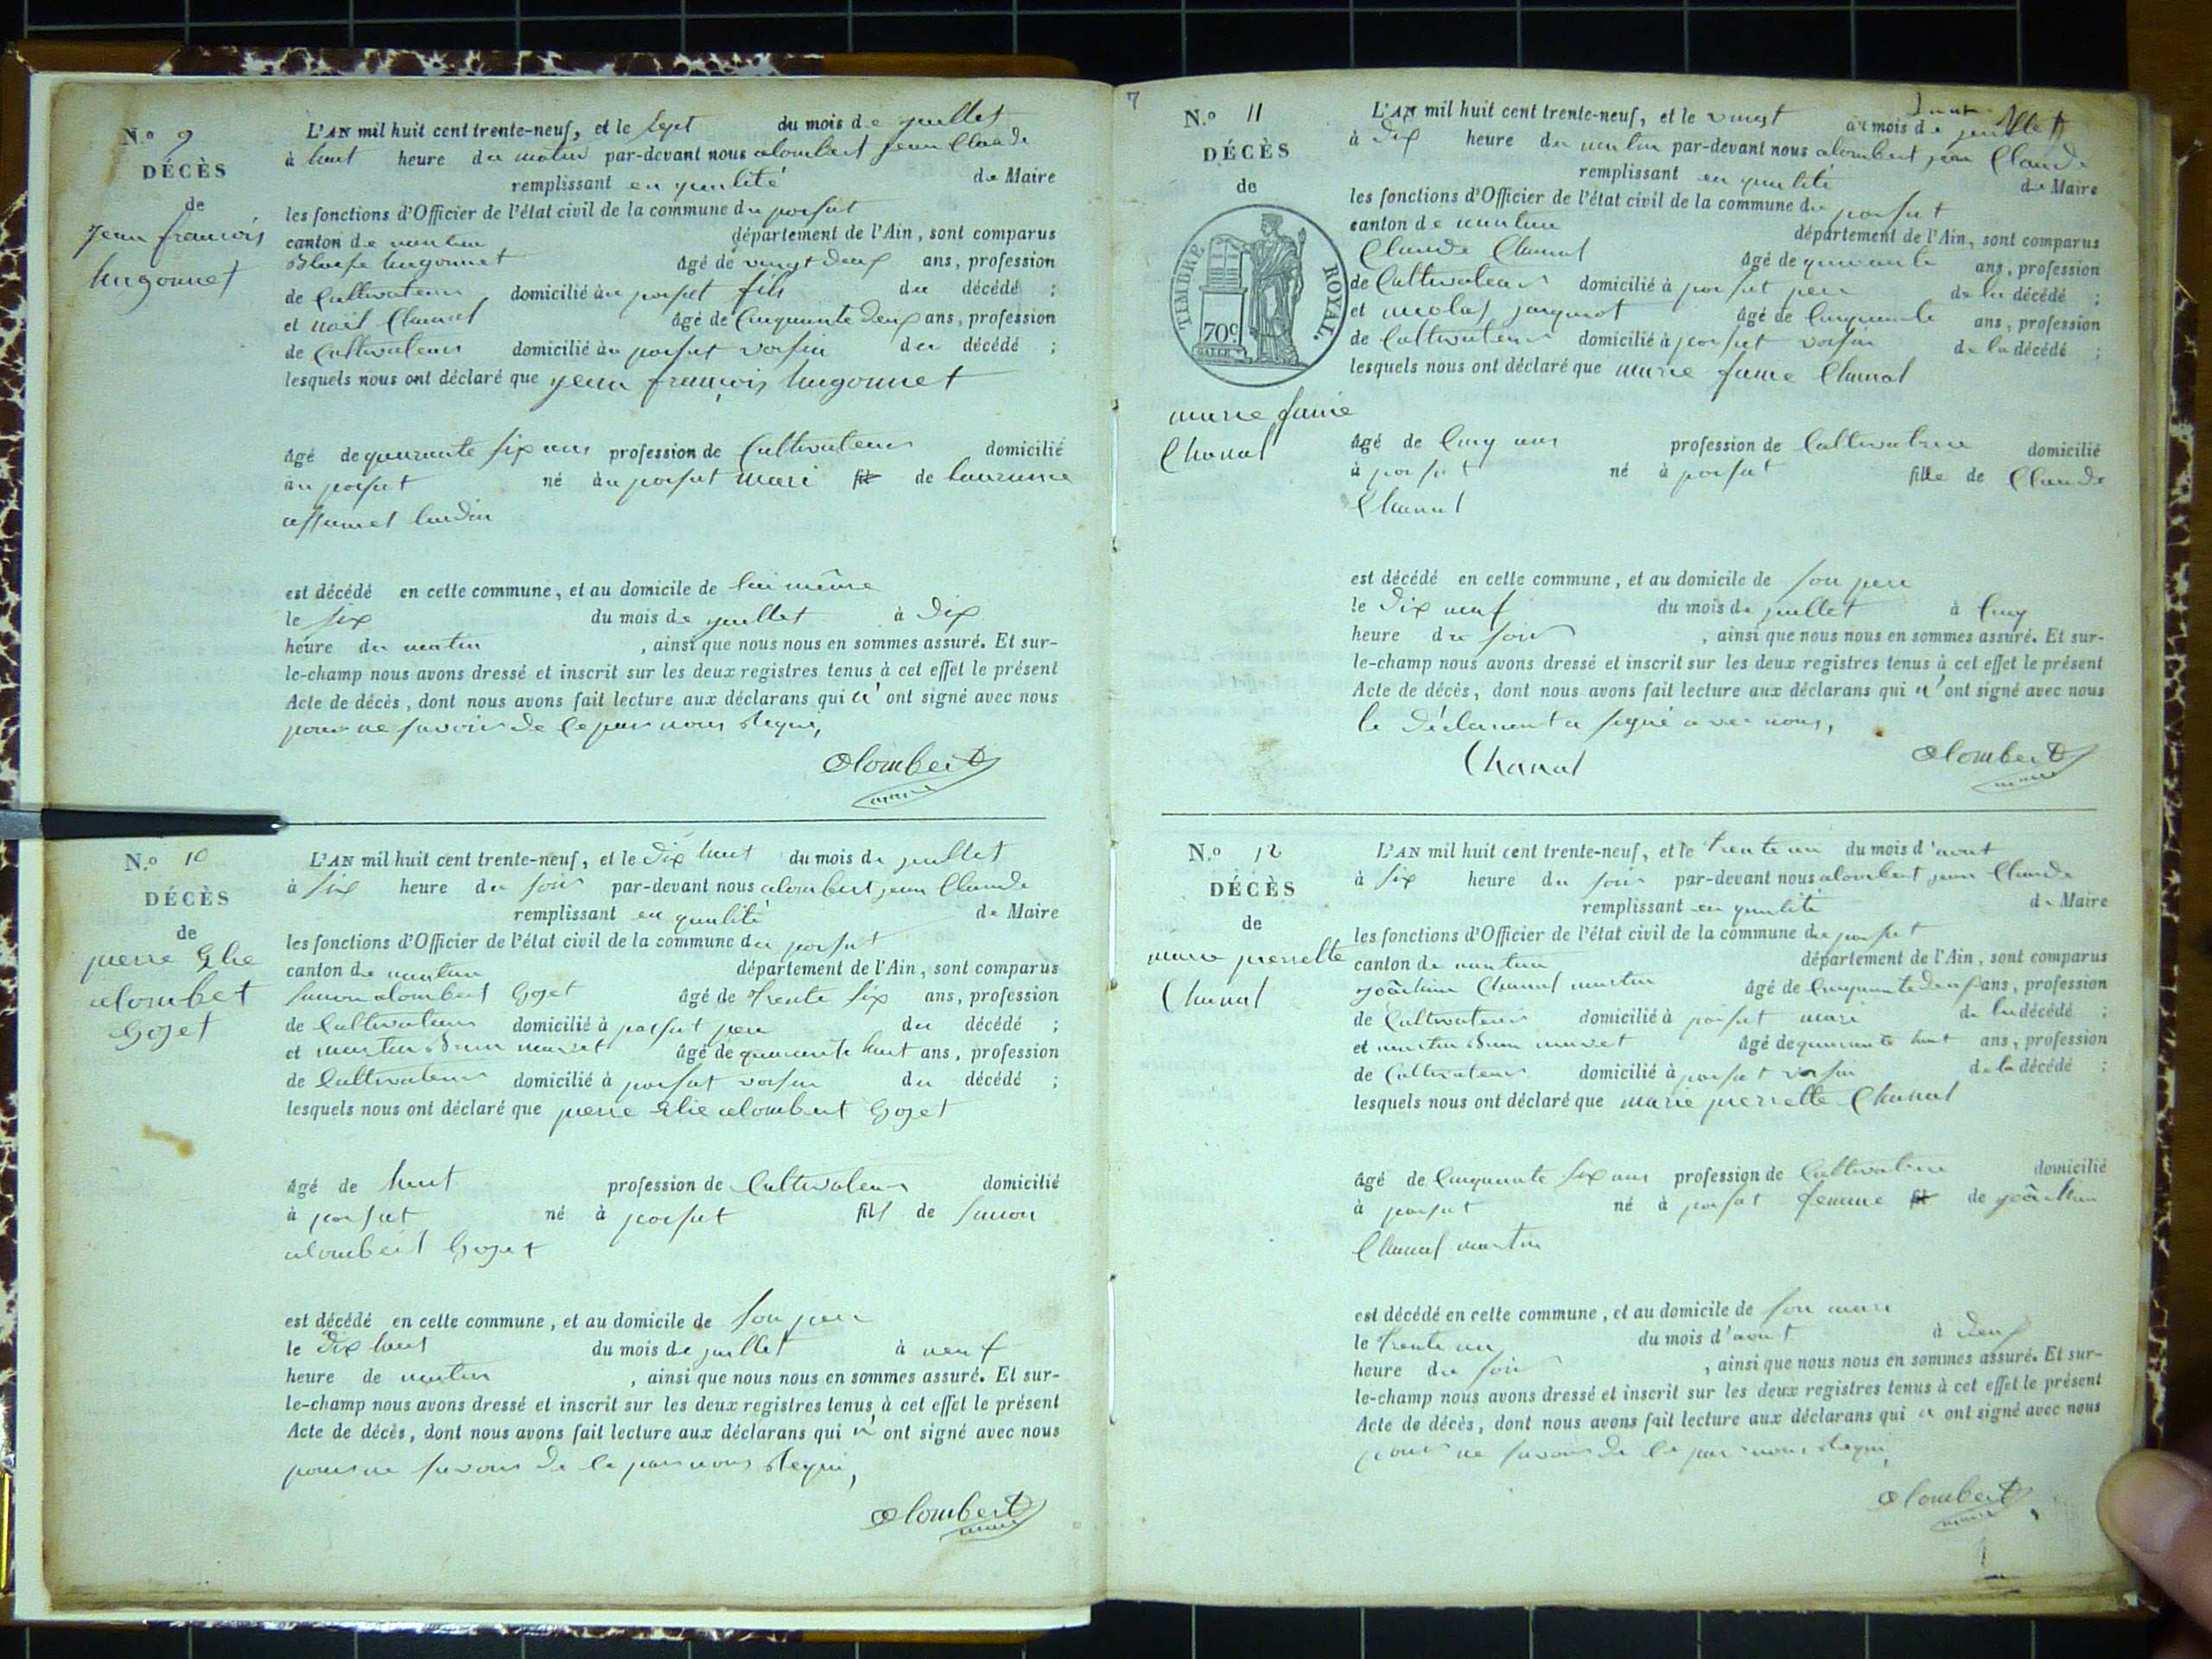 N.o 9
DÉCÈS
de
jean francois
hugonnet
L'AN mil huit cent trente-neuf, et le sept du mois de juillet
à huit heure du matin par-devant nous alombert jean Claude
remplissant en qualité de Maire
les fonctions d'Officier de l'état civil de la commune du poisat
canton de nantua département de l'Ain, sont comparus
hugonnet âgé de vingt deux ans, profession
de Cultivateur domicilié au poisat fils du décédé ;
et noël Chanal âgé de Cinquante deux ans, profession
de Cultivateur domicilié au poisat voisin du décédé ;
lesquels nous ont déclaré que jean françois hugonnet
âgé de quarante six ans profession de Cultivateur domicilié
au poisat né au poisat mari fil de
est décédé en cette commune, et au domicile de lui même
le six du mois de juillet à dix
heure du matin , ainsi que nous nous en sommes assuré. Et sur-
le-champ nous avons dressé et inscrit sur les deux registres tenus à cet effet le présent
Acte de décès, dont nous avons fait lecture aux déclarans qui n'ont signé avec nous
pour ne savoir de ce par nous requi,
alombert
maire
N.o 10
DÉCÈS
de
pierre Elie
alombet
Gojet
L'AN mil huit cent trente-neuf, et le dix huit du mois de juillet
à six heure du soir par-devant nous alombert jean Claude
remplissant en qualité de Maire
les fonctions d'Officier de l'état civil de la commune du poisat
canton de nantua département de l'Ain, sont comparus
simon alombert Gojet âgé de trente six ans, profession
de Cultivateur domicilié à poisat pere du décédé ;
et martin brun âgé de quarante huit ans, profession
de Cultivateur domicilié à poisat voisin du décédé ;
lesquels nous ont déclaré que pierre Elie alombert Gojet
âgé de huit profession de Cultivateur domicilié
à poisat né à poisat fils de simon
alombert Gojet
est décédé en cette commune, et au domicile de son pere
le dix huit du mois de juillet à neuf
heure de matin , ainsi que nous nous en sommes assuré. Et sur-
le-champ nous avons dressé et inscrit sur les deux registres tenus à cet effet le présent
Acte de décès, dont nous avons fait lecture aux déclarans qui n'ont signé avec nous
pour ne savoir de ce par nous requi,
alombert
maire
7
N.o 11
DÉCÈS
de
TIMBRE ROYAL.
70c
marie fanie
Chanal
L'AN mil huit cent trente-neuf, et le vingt du mois de juillet
à dix heure du matin par-devant nous alombert jean Claude
remplissant en qualité de Maire
les fonctions d'Officier de l'état civil de la commune du poisat
canton de nantua département de l'Ain, sont comparus
Claude Chanal âgé de quarante ans, profession
de Cultivateur domicilié à poisat pere de la décédé ;
et nicolas jacquiot âgé de Cinquante ans, profession
de Cultivateur domicilié à poisat voisin de la décédé ;
lesquels nous ont déclaré que marie fanie Chanal
âgé de Cinq ans profession de Cultivatrice domicilié
à poisat né à poisat fille de Claude
Chanal
est décédé en cette commune, et au domicile de son pere
le dix neuf du mois de juillet à Cinq
heure du soir , ainsi que nous nous en sommes assuré. Et sur-
le-champ nous avons dressé et inscrit sur les deux registres tenus à cet effet le présent
Acte de décès, dont nous avons fait lecture aux déclarans qui n'ont signé avec nous
le déclarent a signé avec nous,
Chanal alombert
maire
N.o 12
DÉCÈS
de
marie pierrette
Chanal
L'AN mil huit cent trente-neuf, et le trente un du mois d'aout
à six heure du soir par-devant nous alombert jean Claude
remplissant en qualité de Maire
les fonctions d'Officier de l'état civil de la commune du poisat
canton de nantua département de l'Ain, sont comparus
joachim Chanal martin âgé de Cinquante deux ans, profession
de Cultivateur domicilié à poisat mari de la décédé ;
et martin brun âgé de quarante huit ans, profession
de Cultivateur domicilié à poisat voisin de la décédé ;
lesquels nous ont déclaré que marie pierrette Chanal
âgé de Cinquante six ans profession de Cultivatrice domicilié
à poisat né à poisat femme fil de joachim
Chanal martin
est décédé en cette commune, et au domicile de son mari
le trente un du mois d'aout à deux
heure du soir , ainsi que nous nous en sommes assuré. Et sur-
le-champ nous avons dressé et inscrit sur les deux registres tenus à cet effet le présent
Acte de décès, dont nous avons fait lecture aux déclarans qui n ont signé avec nous
pour ne savoir de ce par nous requi,
alombert
maire